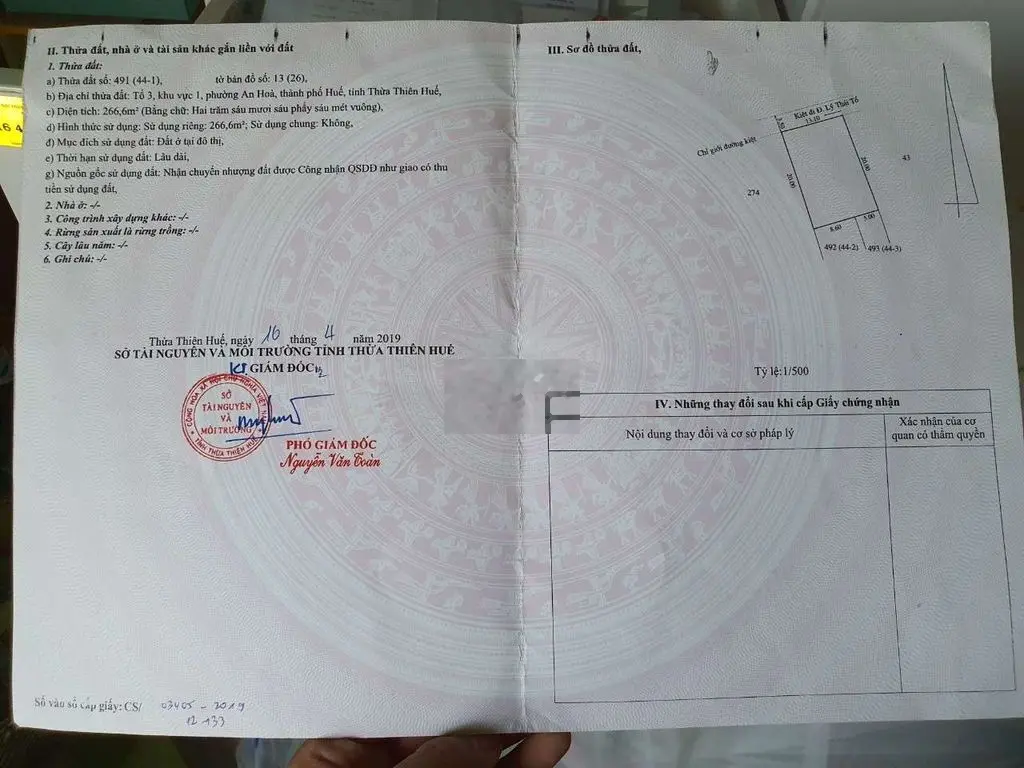 II. Thửa đất, nhà ở và tài sản khác gắn liền với đất
1. Thửa đất:
a) Thửa đất số: 491 (44-1), tờ bản đồ số: 13 (26),
b) Địa chỉ thửa đất: Tổ 3, khu vực 1, phường An Hoà, thành phố Huế, tỉnh Thừa Thiên Huế,
c) Diện tích: 266,6m² (Bằng chữ: Hai trăm sáu mươi sáu phẩy sáu mét vuông),
d) Hình thức sử dụng: Sử dụng riêng: 266,6m²; Sử dụng chung: Không,
đ) Mục đích sử dụng đất: Đất ở tại đô thị,
e) Thời hạn sử dụng đất: Lâu dài,
g) Nguồn gốc sử dụng đất: Nhận chuyển nhượng đất được Công nhận QSDĐ như giao có thu
tiền sử dụng đất,
2. Nhà ở: -/-
3. Công trình xây dựng khác: -/-
4. Rừng sản xuất là rừng trồng: -/-
5. Cây lâu năm: -/-
6. Ghi chú: -/-
Thừa Thiên Huế, ngày 16 tháng 4 năm 2019
SỞ TÀI NGUYÊN VÀ MÔI TRƯỜNG TỈNH THỪA THIÊN HUẾ
KT. GIÁM ĐỐC
CỘNG HÒA XÃ HỘI CHỦ NGHĨA VIỆT NAM
SỞ
TÀI NGUYÊN
VÀ
MÔI TRƯỜNG
TỈNH THỪA THIÊN HUẾ
PHÓ GIÁM ĐỐC
Nguyễn Văn Toàn
Số vào sổ cấp giấy: CS/ 03405 - 2019
12 133
III. Sơ đồ thửa đất,
Kiệt đi Đ. Lý Thái Tổ
13.10
Chỉ giới đường kiệt
20.00
20.00
43
274
8.60
5.00
492 (44-2)
493 (44-3)
Tỷ lệ: 1/500
IV. Những thay đổi sau khi cấp Giấy chứng nhận
Nội dung thay đổi và cơ sở pháp lý
Xác nhận của cơ
quan có thẩm quyền